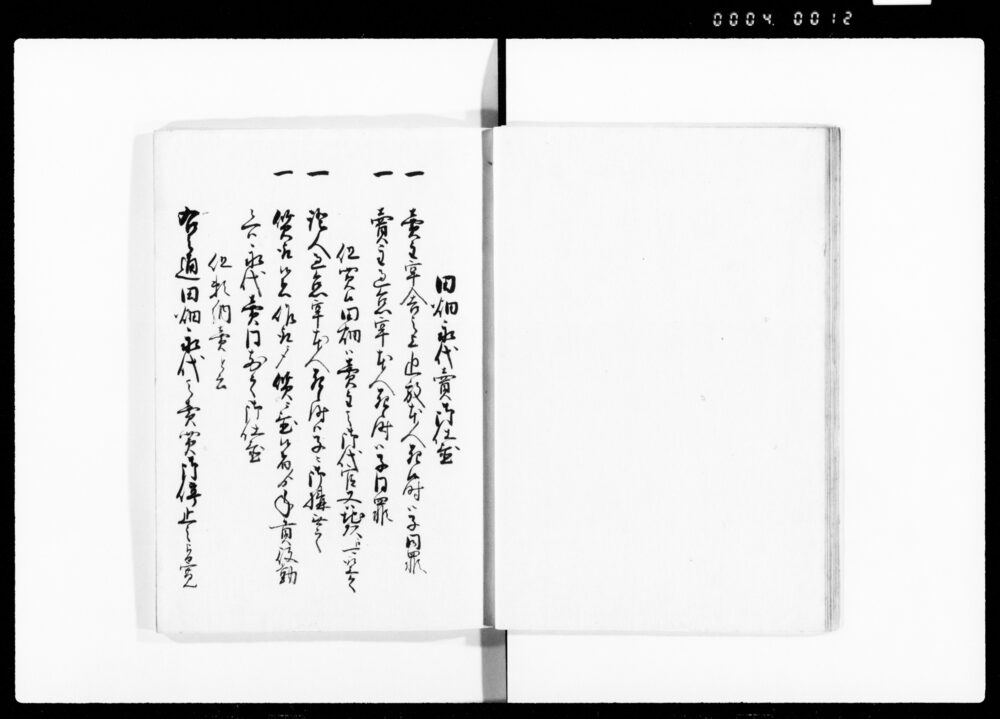 0004 0012
田畑永代賣御仕置
一 賣主牢舎之上追放本人死候時ハ子同罪
一 買主過怠牢本人死候時ハ子同罪
但買候田畑ハ賣主之御代官又ハ地頭江取上之
一 證人過怠牢本人死候時ハ子ニ御構無之
一 質ニ取候者作取ニ〆質ニ置候者より年貢役勤
候得ハ永代賣同前之御仕置
但頼納賣と云
右之通田畑永代之賣買御停止之旨寛